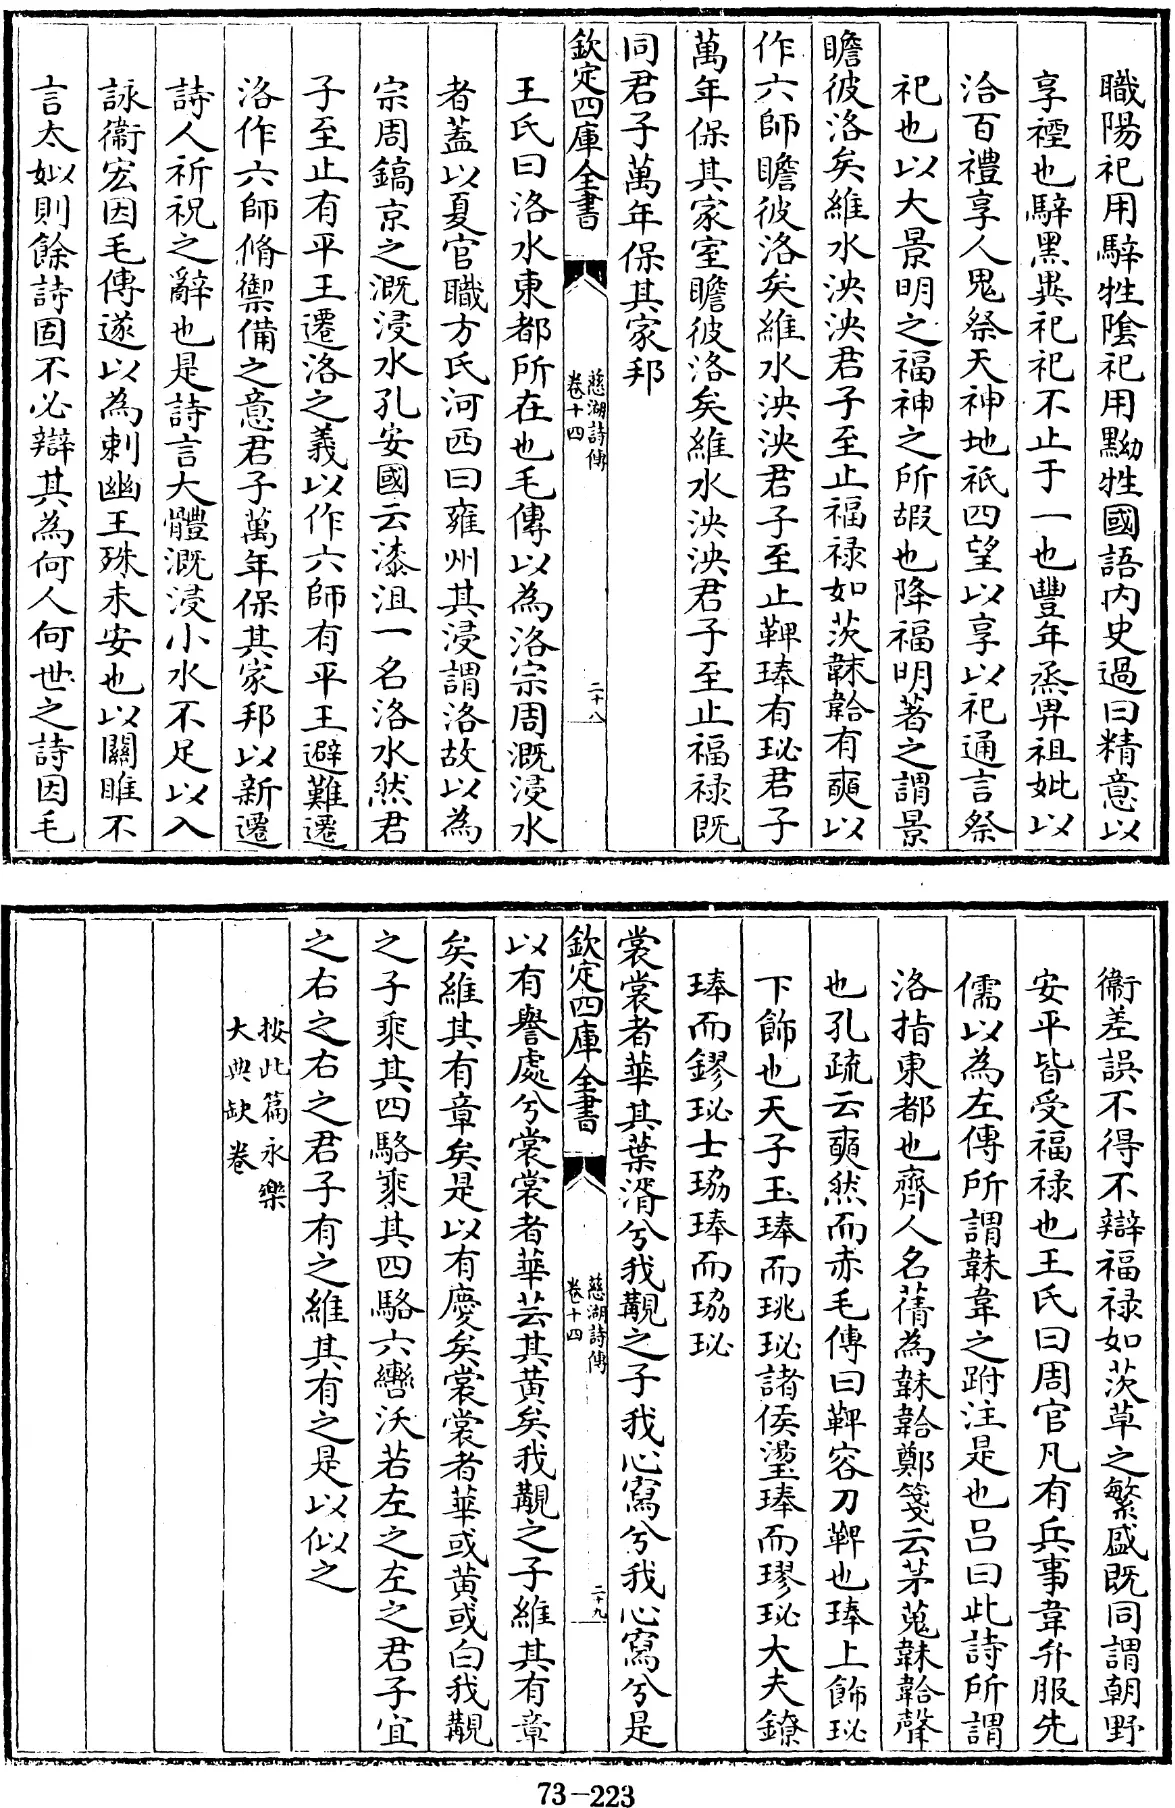 職陽祀用騂牲陰祀用黝牲國語内史過曰精意以
享禋也騂黑異祀祀不止于一也豐年烝畀祖妣以
洽百禮享人鬼祭天神地祇四望以享以祀通言祭
祀也以大景明之福神之所嘏也降福明著之謂景
瞻彼洛矣維水泱泱君子至止福祿如茨韎韐有奭以
作六師瞻彼洛矣維水泱泱君子至止鞞琫有珌君子
萬年保其家室瞻彼洛矣維水泱泱君子至止福祿既
同君子萬年保其家邦
欽定四庫全書
慈湖詩傳
卷十四
二十八
王氏曰洛水東都所在也毛傳以為洛宗周溉浸水
者蓋以夏官職方氏河西曰雍州其浸謂洛故以為
宗周鎬京之溉浸水孔安國云漆沮一名洛水然君
子至止有平王遷洛之義以作六師有平王避難遷
洛作六師脩禦備之意君子萬年保其家邦以新遷
詩人祈祝之辭也是詩言大體溉浸小水不足以入
詠衞宏因毛傳遂以為刺幽王殊未安也以關雎不
言太姒則餘詩固不必辯其為何人何世之詩因毛
衞差誤不得不辯福祿如茨草之繁盛既同謂朝野
安平皆受福祿也王氏曰周官凡有兵事韋弁服先
儒以為左傳所謂韎韋之跗注是也吕曰此詩所謂
洛指東都也齊人名蒨為韎韐鄭箋云茅蒐韎韐聲
也孔疏云奭然而赤毛傳曰鞞容刀鞞也琫上飾珌
下飾也天子玉琫而珧珌諸侯璗琫而璆珌大夫鐐
琫而鏐珌士珕琫而珕珌
裳裳者華其葉湑兮我覯之子我心寫兮我心寫兮是
欽定四庫全書
慈湖詩傳
卷十四
二十九
以有譽處兮裳裳者華芸其黄矣我覯之子維其有章
矣維其有章矣是以有慶矣裳裳者華或黄或白我覯
之子乘其四駱乘其四駱六轡沃若左之左之君子宜
之右之右之君子有之維其有之是以似之
按此篇永樂
大典缺卷
73-223